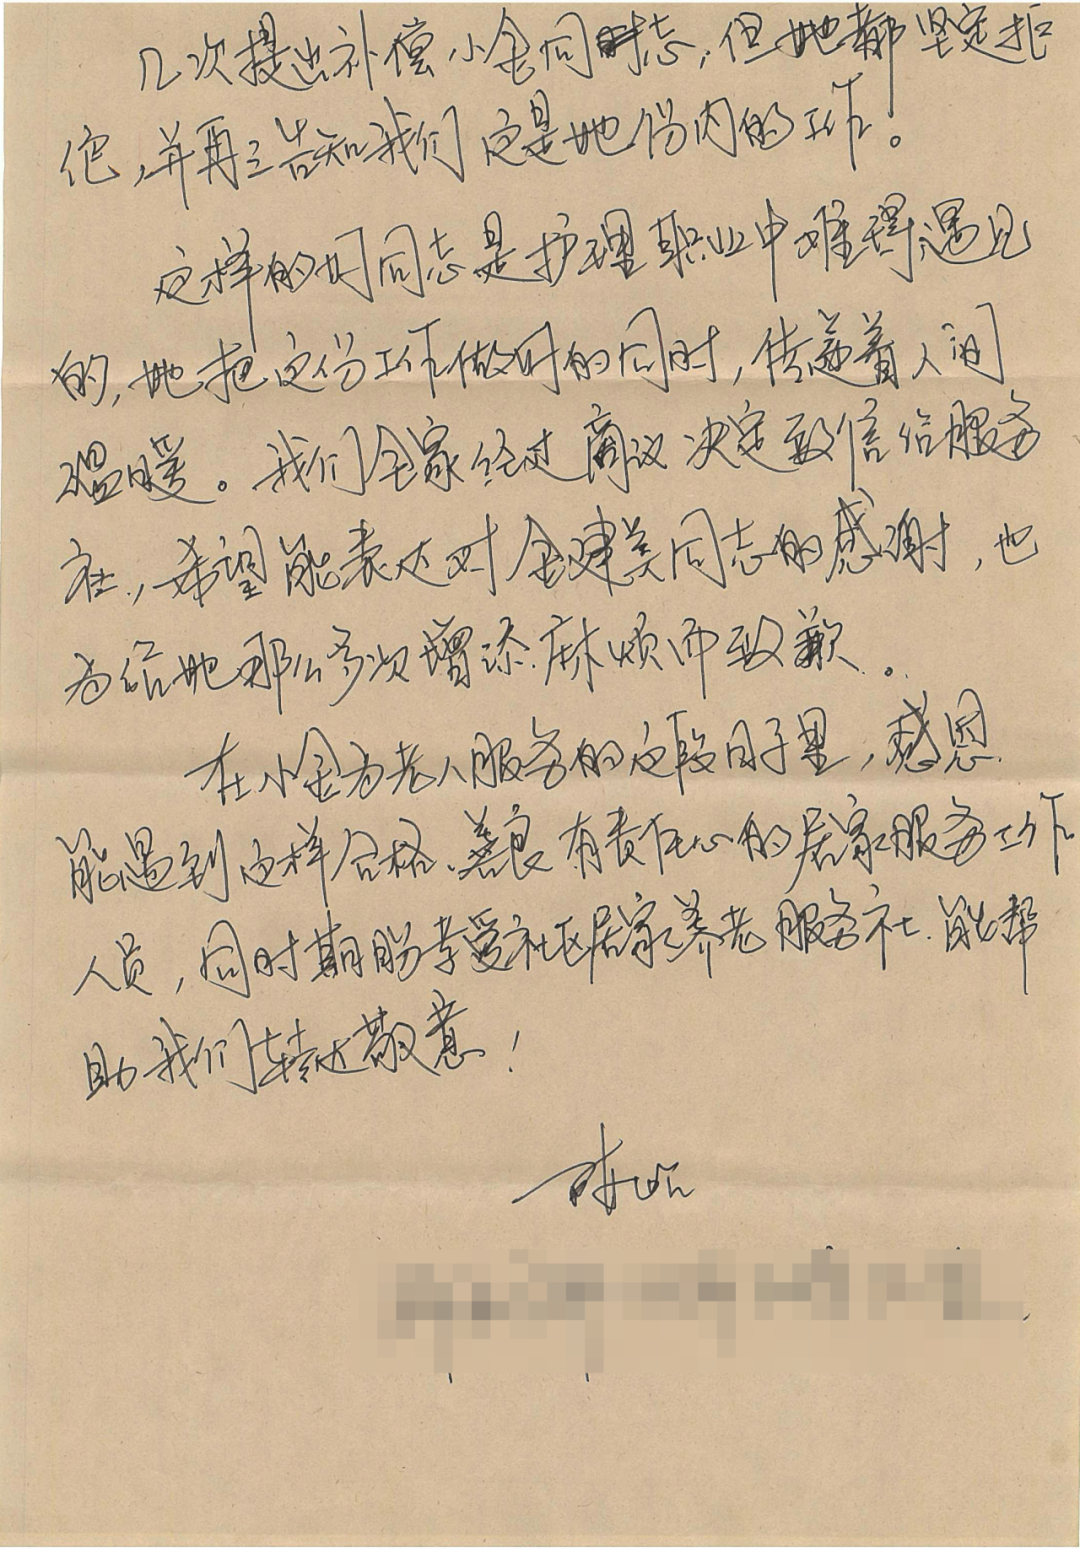 几次提出补偿小金同志,但她都坚定拒
绝,并再三告知我们这是她份内的工作。
这样的好同志是护理职业中难得遇见
的,她把这份工作做好的同时,传递着人间
温暖。我们全家经过商议决定致信给服务
社,希望能表达对金建美同志的感谢,也
为给她那么多次增添麻烦而致歉。
在小金为老人服务的这段日子里,感恩
能遇到这样合格、善良、有责任心的居家服务工作
人员,同时期盼孝爱社区居家养老服务社能帮
助我们转达敬意!